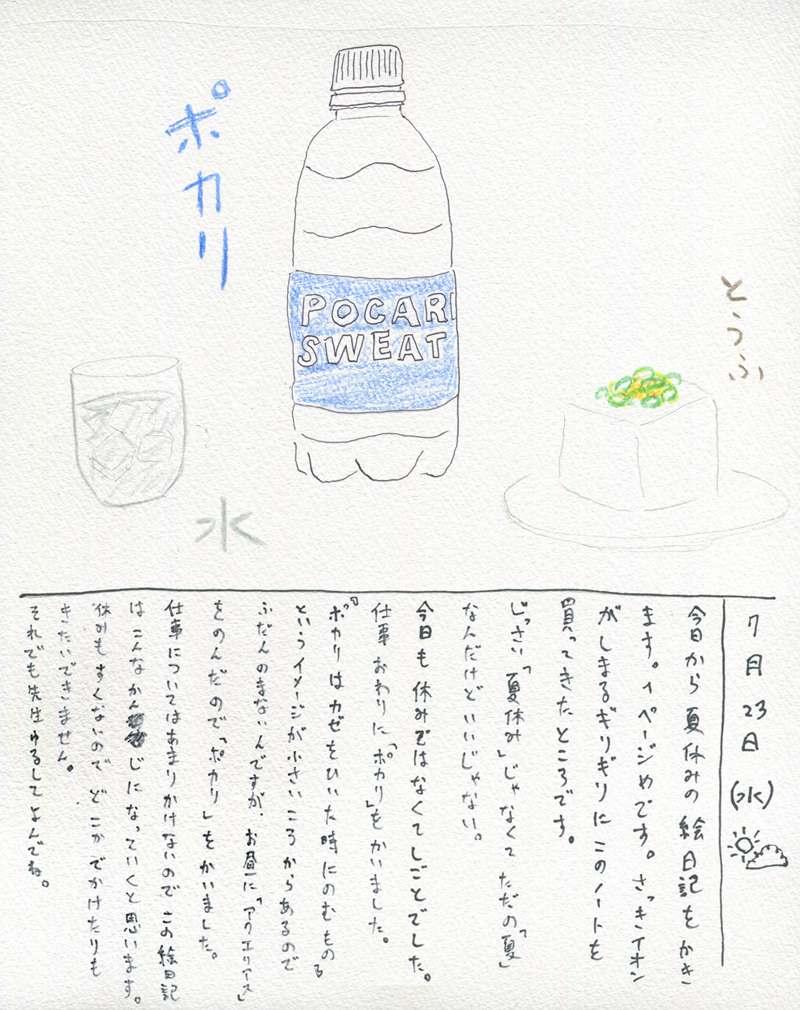 ポカリ
POCARI
SWEAT
とうふ
水
7月23日(水)
今日から夏休みの絵日記をかき
ます。1ページめです。さっきイオン
がしまるギリギリにこのノートを
買ってきたところです。
じっさい「夏休み」じゃなくてただの「夏」
なんだけどいいじゃない。
今日も休みではなくてしごとでした。
仕事おわりに「ポカリ」をかいました。
『ポカリはカゼをひいた時にのむもの』
というイメージが小さいころからあるので
ふだんのまないんですが、お昼に「アクエリアス」
をのんだので「ポカリ」をかいました。
仕事についてはあまりかけないのでこの絵日記
はこんなかんじになっていくと思います。
休みもすくないのでどこかでかけたりも
きたいできません。
それでも先生ゆるしてよんでね。